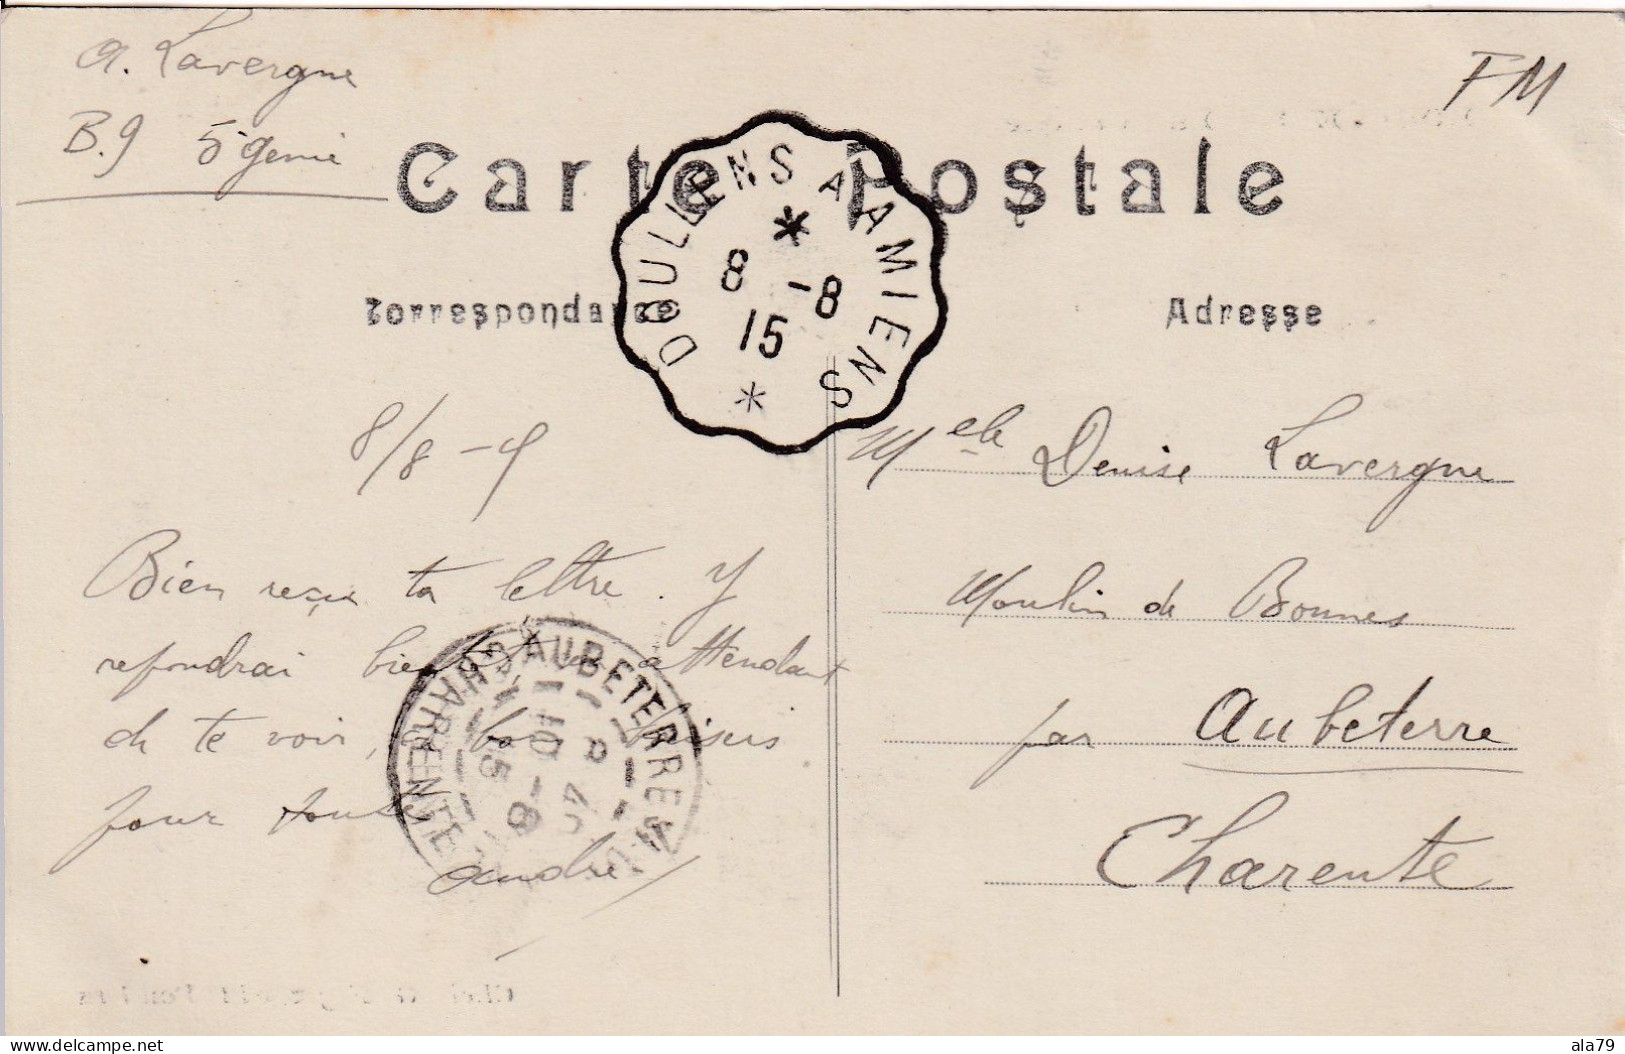 A. Lavergne
B.9 5e génie
FM
Carte Postale
DOULLENS A AMIENS
8 -8
15
Correspondance
Adresse
8/8 -
Bien reçu ta lettre. J'y
repondrai bientôt en attendant
de te voir, bons baisers
pour toute
André
Melle Denise Lavergne
Moulin de Bonnes
par Aubeterre
Charente
AUBETERRE
10 -8
15
CHARENTE
ala79